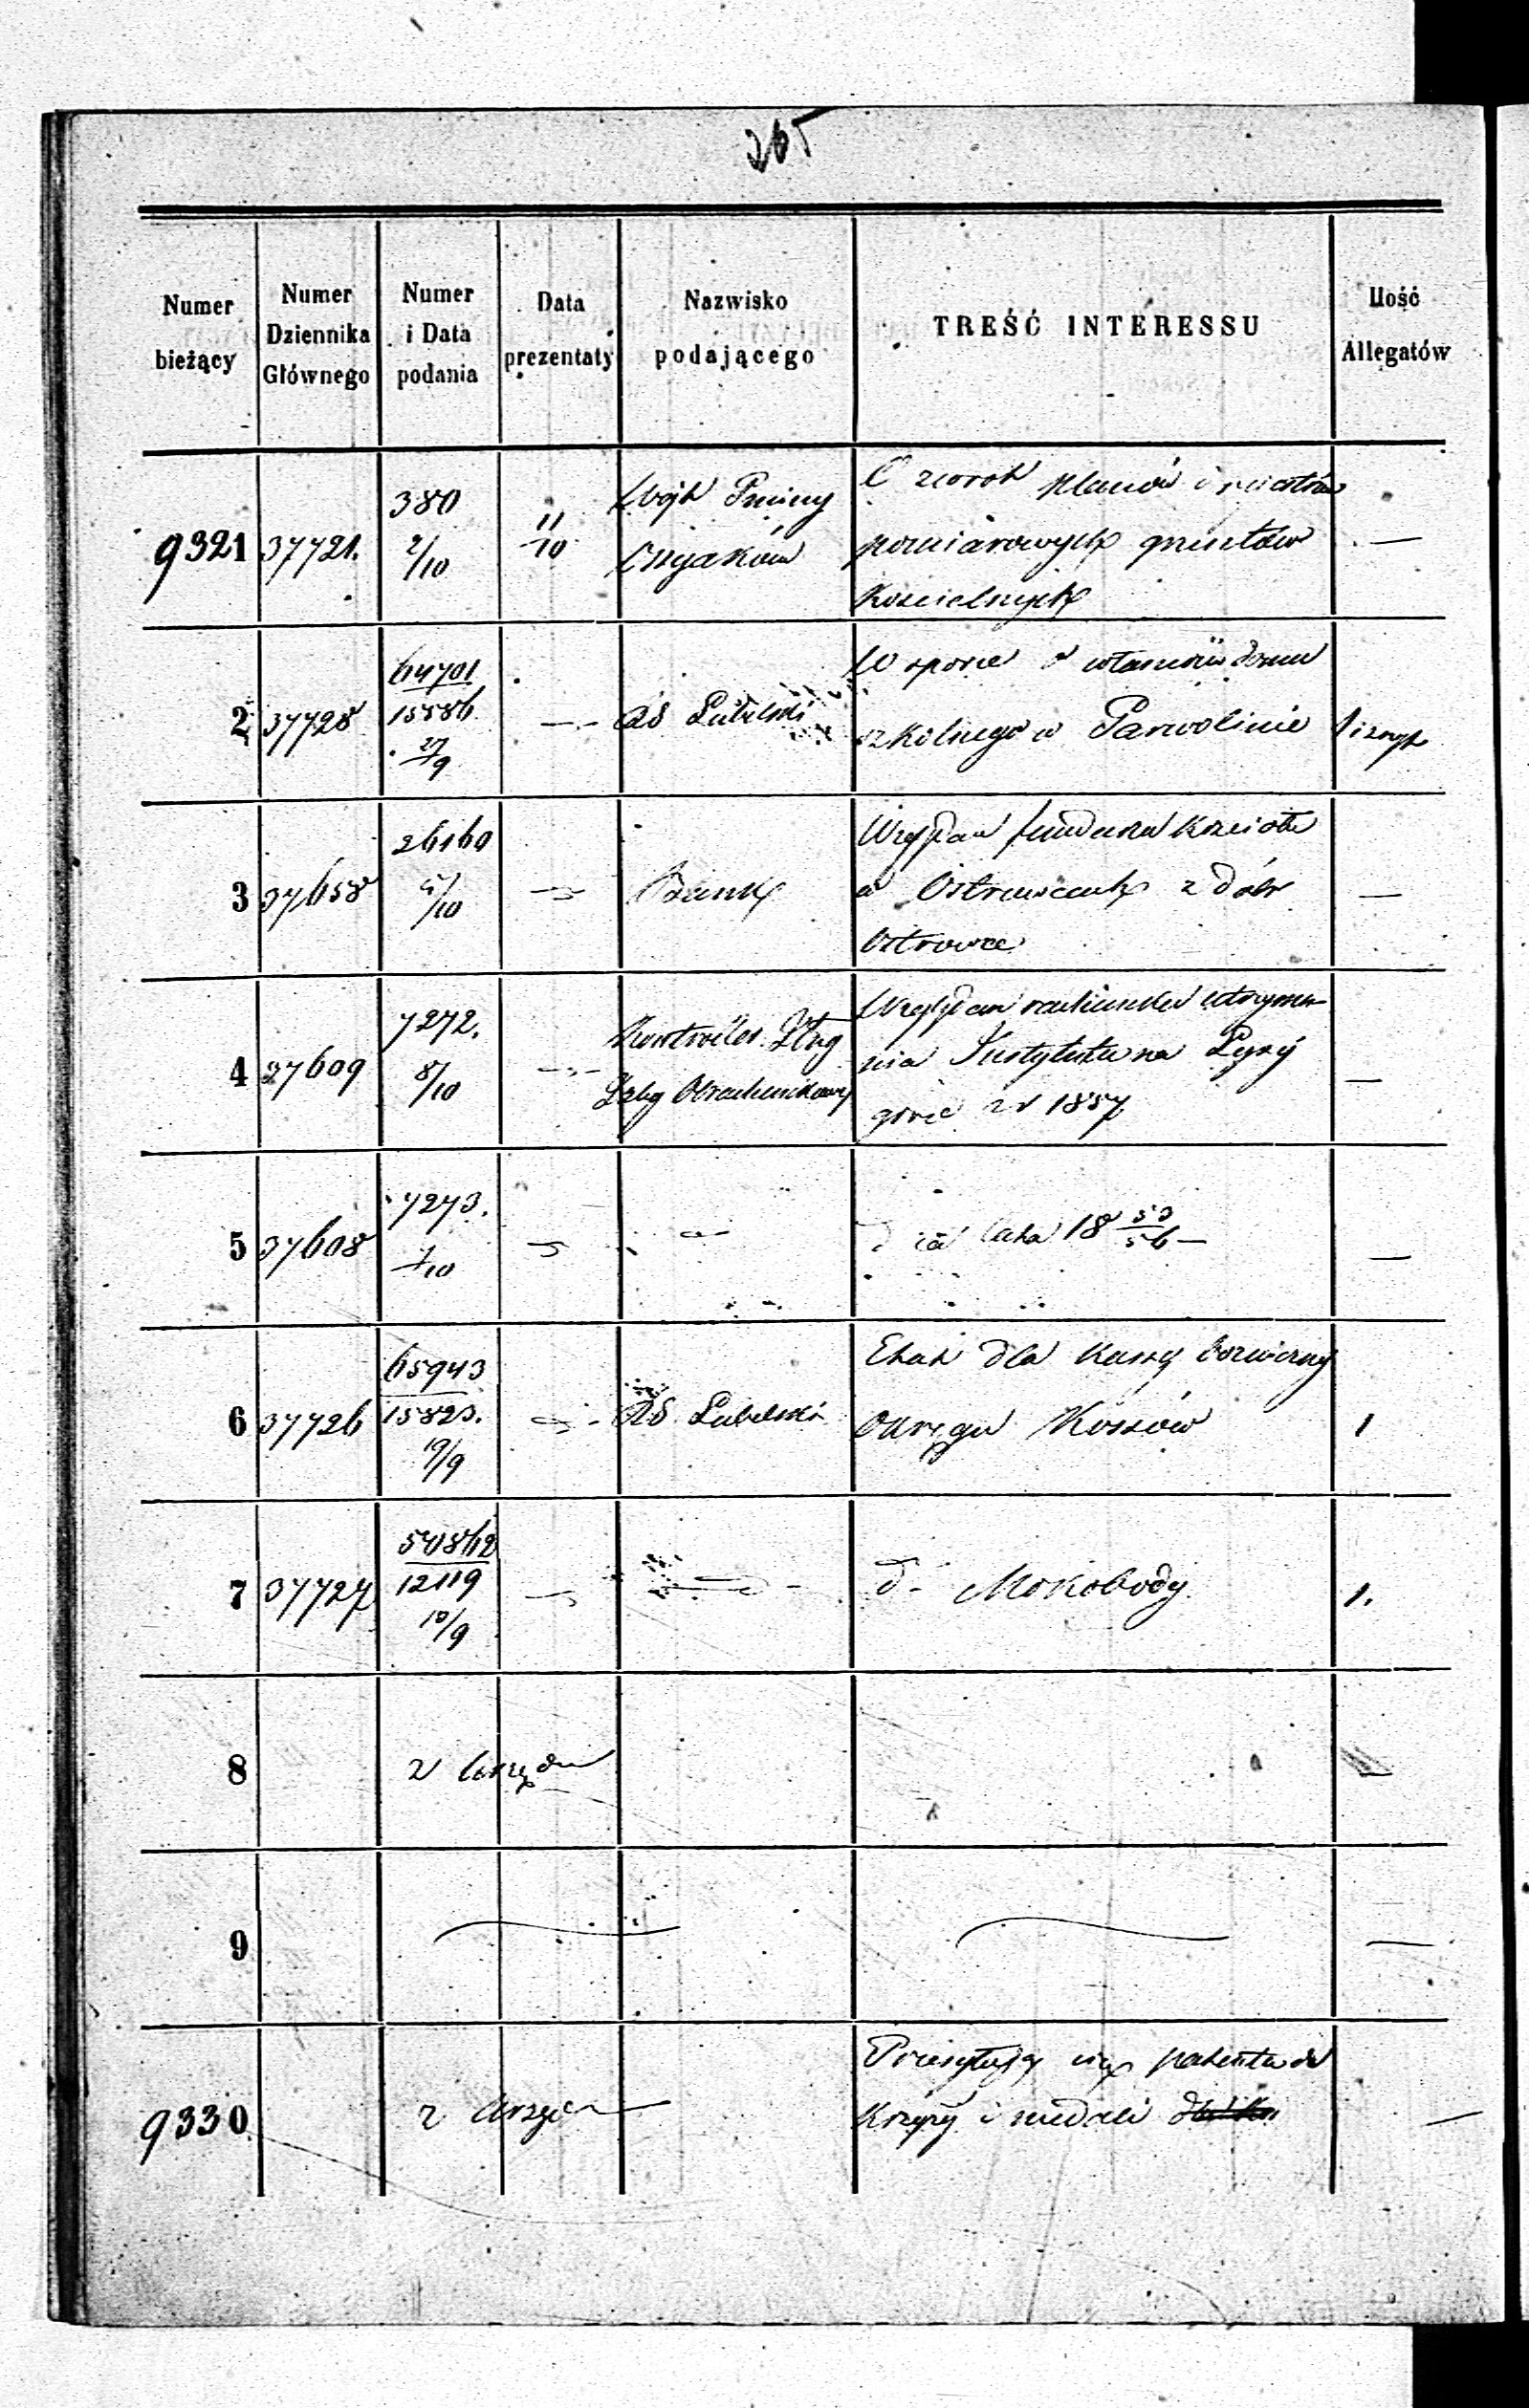 265
Numer bieżący
Numer Dziennika Głównego
Numer i Data podania
Data prezentaty
Nazwisko podającego
TREŚĆ INTERESSU
Ilość Allegatów
9321 37721. 380 2/10 11/10 Wójt Gminy Ossyaków O zwrot planów i
pomiarowych gruntów
Kościelnych —
2 37728 64701 15586 27/9 — RG Lubelski W sporze o własność domu
szkolnego w Garwolinie 1
3 37658 26160 5/10 — Bank Względem fundusza kościoła
w Ostrowcach z dóbr
Ostrowce —
4 37609 7272. 8/10 — Kontroller Izby Obrachunkowej Względem rachunku utrzyma-
nia Instytutu na Łysej
górze z r 1857 —
5 37608 7273. 7/10 — — za lata 18 53/56 — —
6 37726 65943 15823. 19/9 — RG Lubelski Etat dla Kassy Bożniczej
Okręgu Kossów 1
7 37727 540862 12119 10/9 — — d- Mokobody 1.
8 z Urzędu —
9 —
9330 z Urzędu — Przesyłają się patenta do
Krzyży i medali —